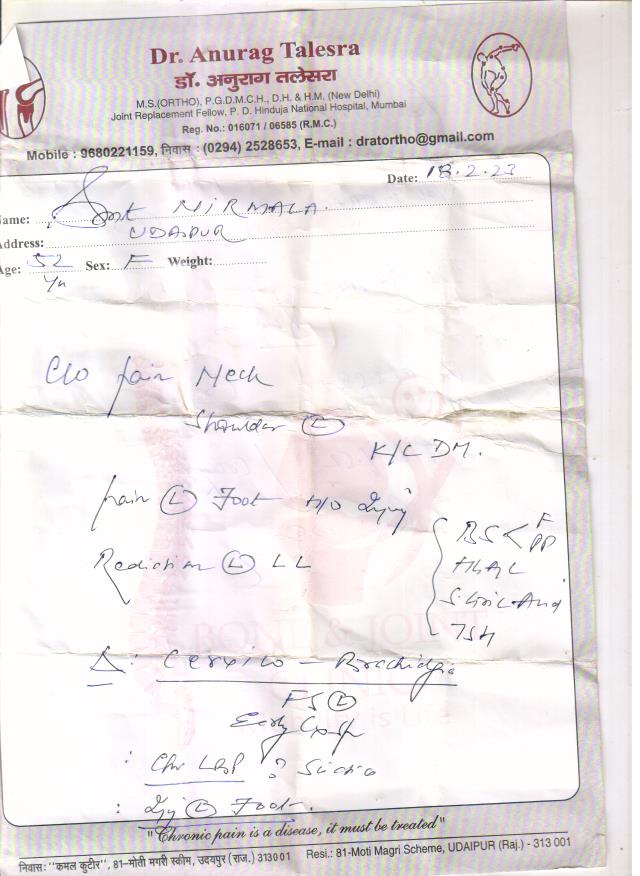 Dr. Anurag Talesra
डॉ. अनुराग तलेसरा
M.S.(ORTHO), P.G.D.M.C.H., D.H. & H.M. (New Delhi)
Joint Replacement Fellow, P. D. Hinduja National Hospital, Mumbai
Reg. No.: 016071 / 06585 (R.M.C.)
Mobile : 9680221159, निवास : (0294) 2528653, E-mail : dratortho@gmail.com
Date: 18.2.23
Name: Smt NIRMALA
Address: UDAIPUR
Age: 52 Yrs Sex: F Weight:
C/o pain Neck
Shoulder (L)
K/C DM.
pain (L) Foot H/O Injury
Radiation (L) LL
BS < F PP
HbA1C
S. Uric Acid
TSH
Δ: Cervico - Brachialgia
FS (L)
Early
: Chr LBP ? Sciatica
: Inj (L) Foot.
BONE & JOINT
CLINIC
is Life
"Chronic pain is a disease, it must be treated"
निवास: "कमल कुटीर", 81-मोती मगरी स्कीम, उदयपुर (राज.) 313001 Resi.: 81-Moti Magri Scheme, UDAIPUR (Raj.) - 313 001